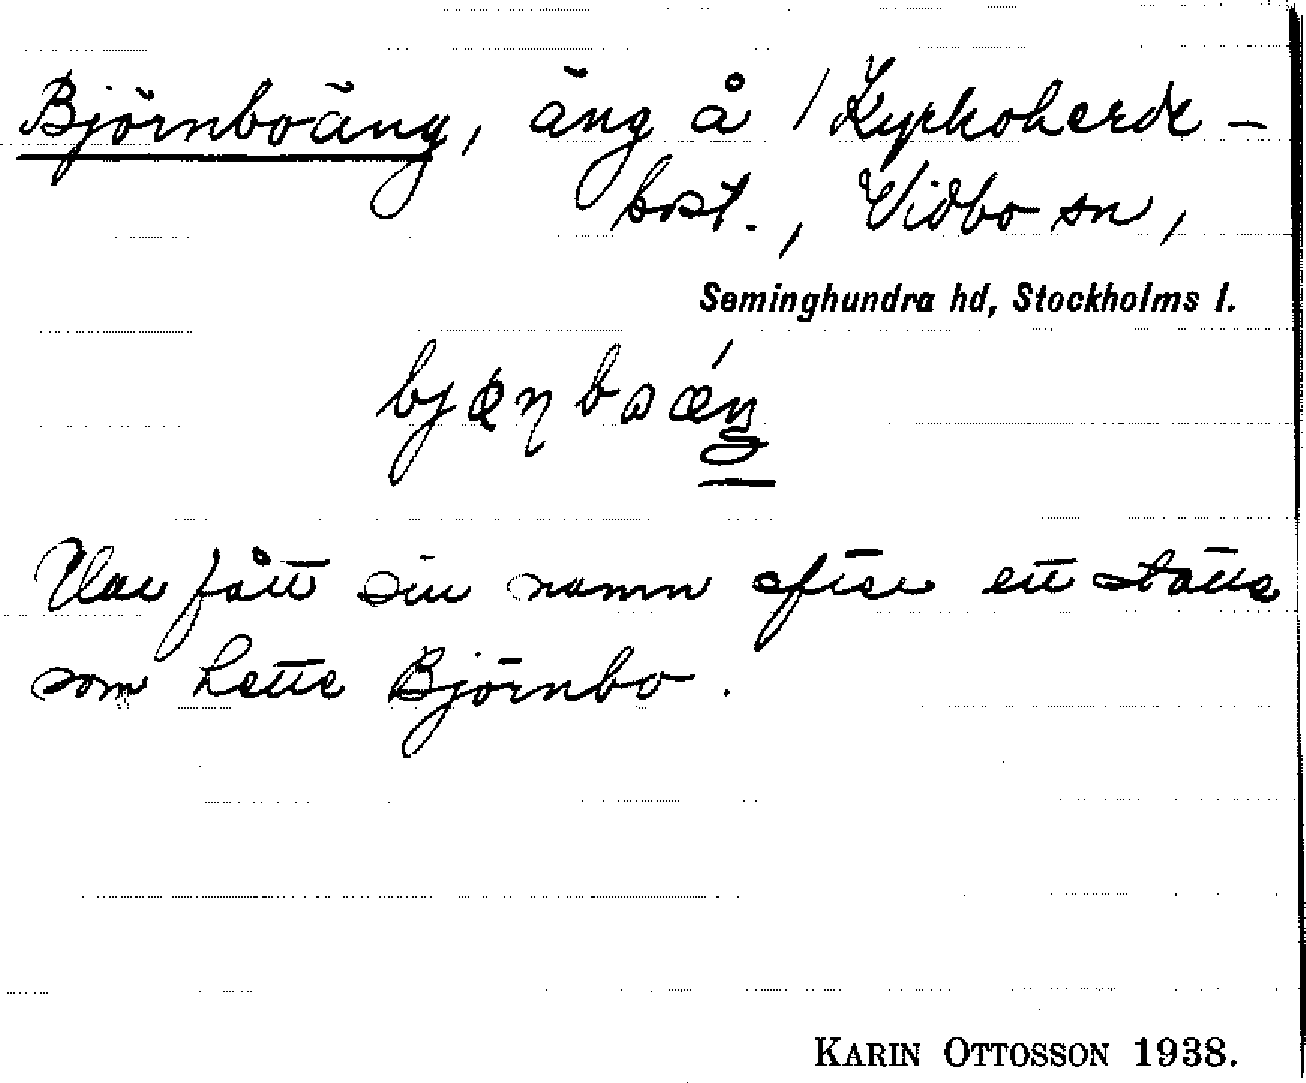 Björnboäng, äng å /Kyrkoherde-
bost., Vidbo sn,
Seminghundra hd, Stockholms l.
Har fått sin namn efter ett ställe
som hette Björnbo.
KARIN OTTOSSON 1938.